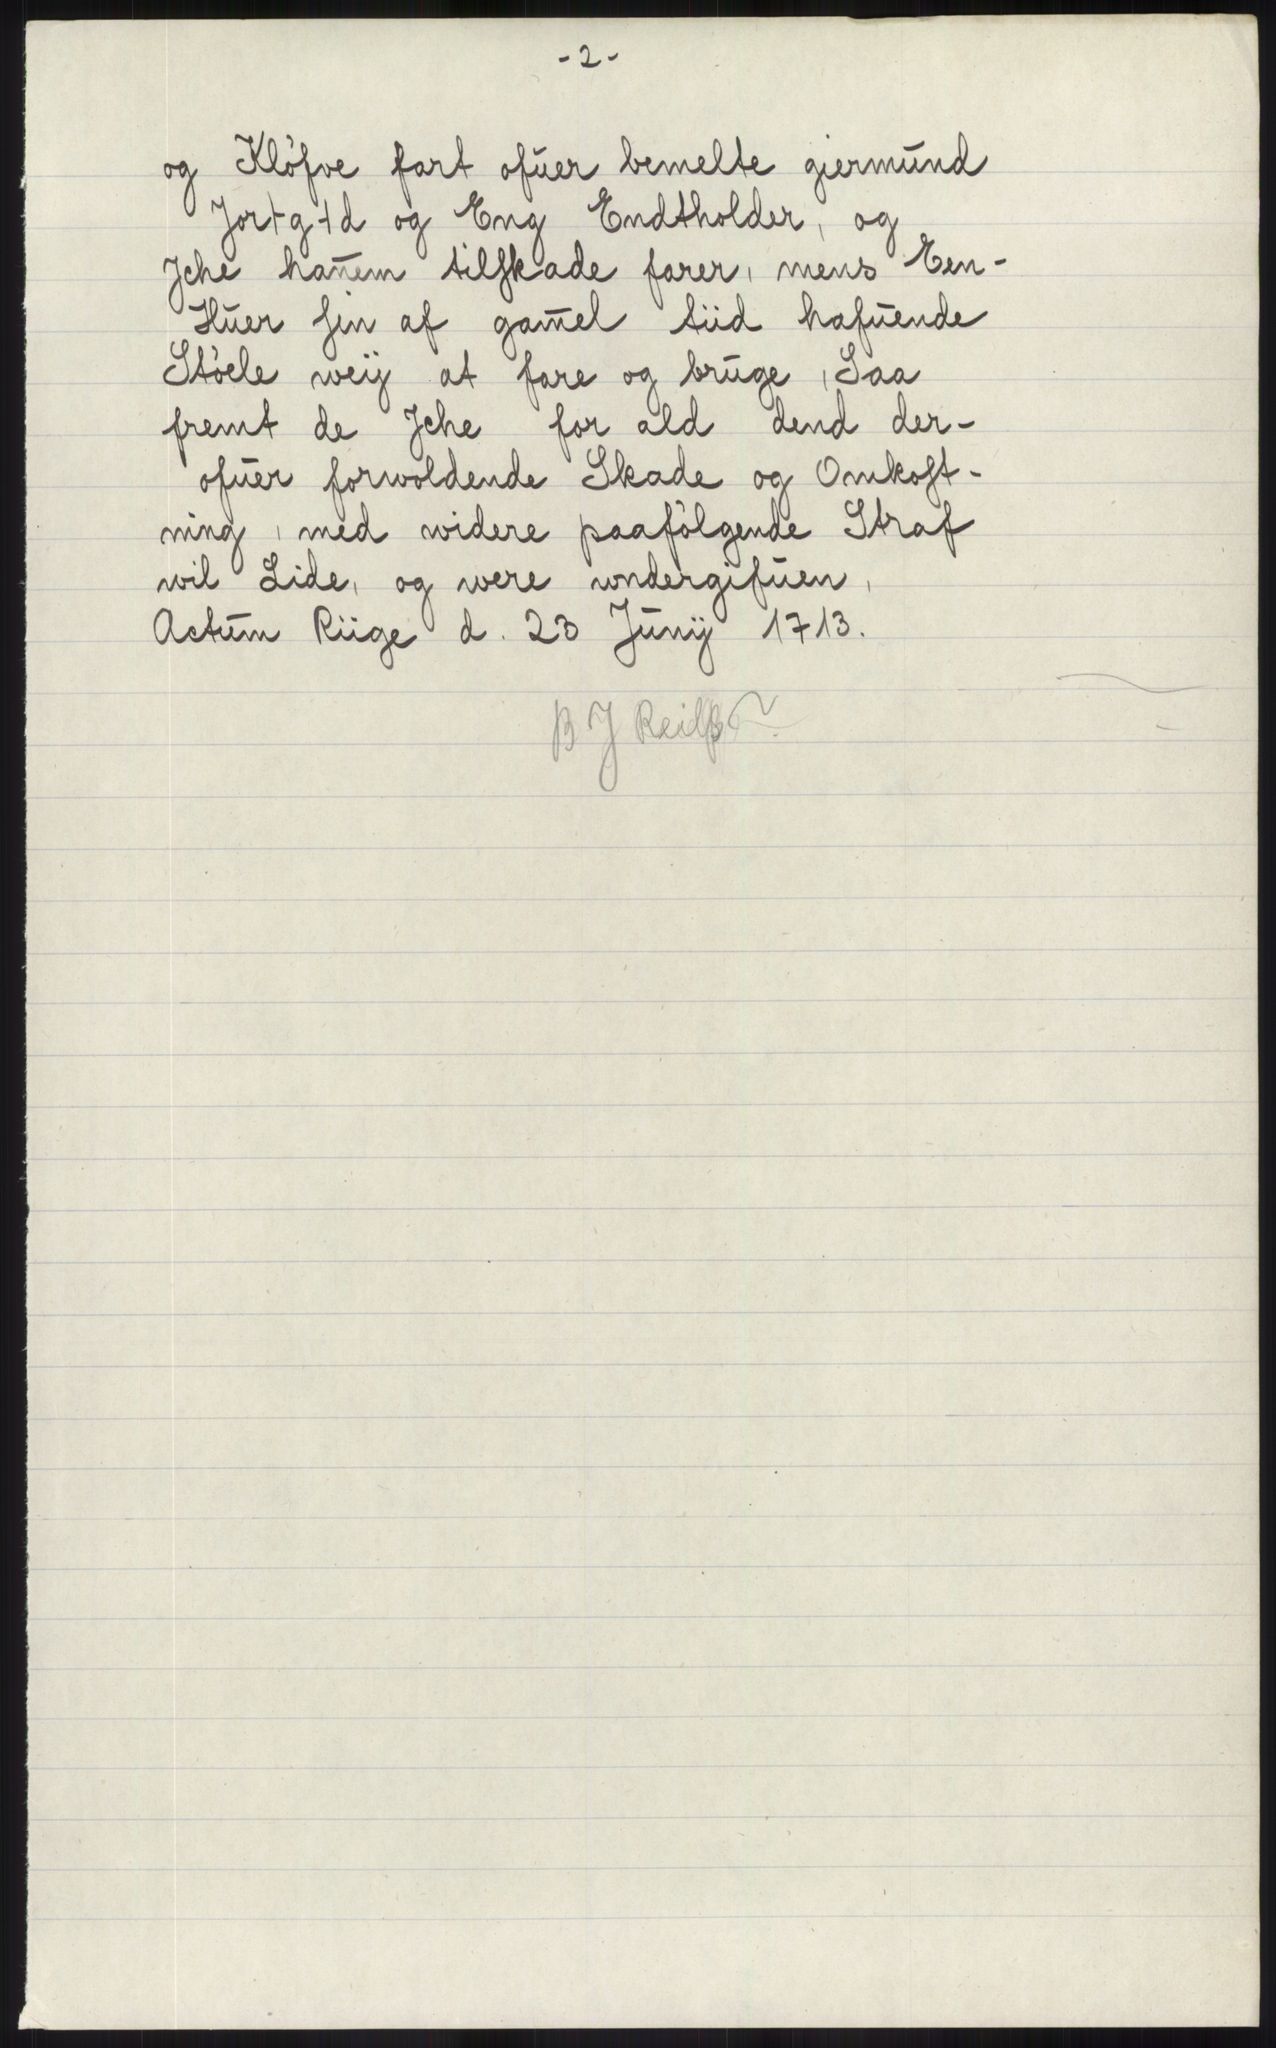 - 2 -
og Kløfve fart ofuer bemelte giermund
Jor+g+d og Eng Endtholder, og
Jche hañem tilſkade farer, mens Een-
Huer ſin af gam̄el tiid hafuende
Støele weÿ at fare og bruge, Saa
fremt de Jche for ald dend der-
ofuer forvoldende Skade og Omkoſt-
ning, med widere paafølgende Straf
wil Lide, og were undergifuen,
Actum Riige d. 23 Junÿ 1713.
B J